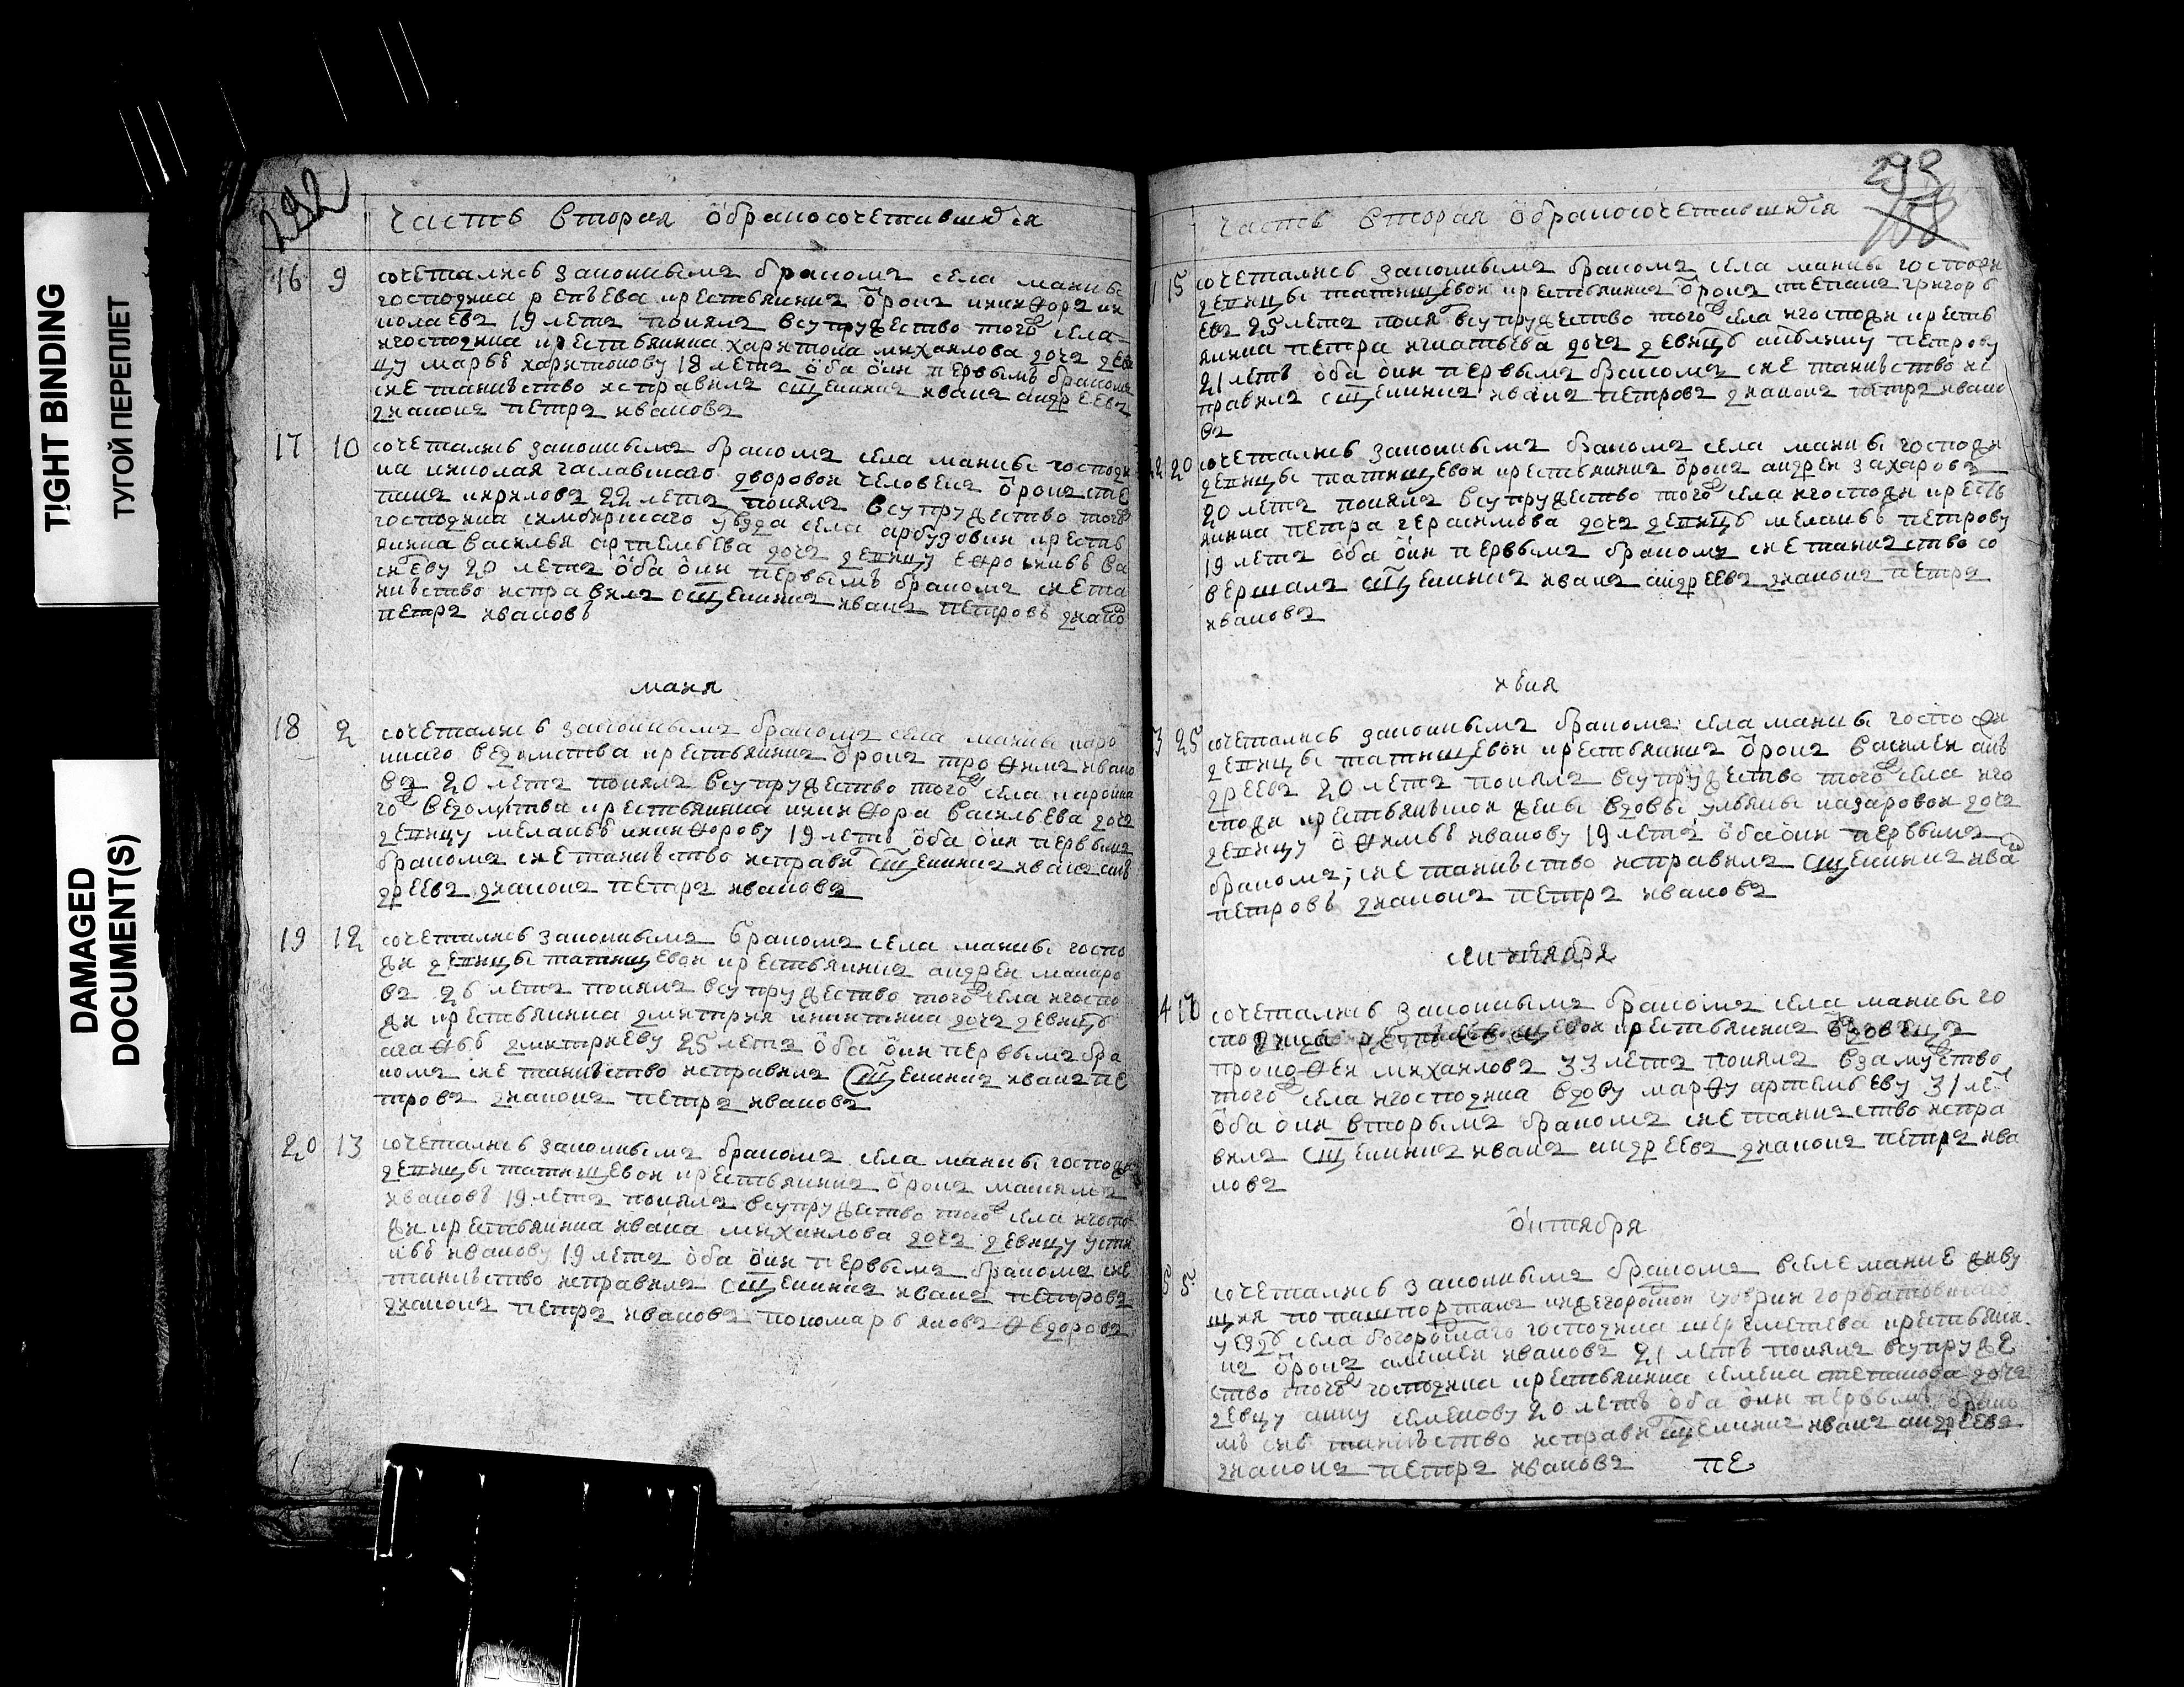 TIGHT BINDING
ТУГОЙ ПЕРЕПЛЕТ
DAMAGED
DOCUMENT(S)
292
Часть вторая о бракосочетавшихся
16 9 сочетались законнымъ бракомъ села маины
господина репьева крестьянинъ отрокъ никифоръ ни
колаевъ 19 летъ понялъ всупружество того села
игосподина крестьянина харитона михаилова дочь деви
цу марью харитонову 18 летъ оба они первымъ бракомъ
сие таинство исправилъ сщенникъ иванъ андреевъ
диаконъ петръ ивановъ
17 10 сочетались законнымъ бракомъ села маины господи
на николая чаславского дворовои человекъ отрокъ сте
панъ кириловъ 22 летъ понялъ всупружество того
господина симбирскаго уезда села арбузовки кресть
янина василья артемьева дочь девицу ефросинью ва
сильеву 20 летъ оба они первымъ бракомъ сие та
инство исправилъ сщенникъ иванъ петровъ диако
петръ ивановъ
маия
18 2 сочетались законнымъ бракомъ села маины
ведомства крестьянинъ отрокъ трофимъ ивано
въ 20 летъ понялъ всупружество того села
го ведомства крестьянина никифора васильева дочь
девицу меланью никифорову 19 летъ оба они первымъ
бракомъ сие таинство исправи сщенникъ иванъ ан
дреевъ диаконъ петръ ивановъ
19 12 сочетались законнымъ бракомъ села маины госпо
жи девицы татищевои крестьянинъ андреи макаро
въ 26 летъ понялъ всупружество того села игоспо
жи крестьянина дмитрия никитина дочь девицу
агафью дмитриеву 25 летъ оба они первымъ бра
комъ сие таинство исправилъ сщенникъ иванъ пе
тровъ диаконъ петръ ивановъ
20 13 сочетались законнымъ бракомъ села маины господи
девицы татищевои крестьянинъ отрокъ максимъ
ивановъ 19 летъ понялъ всупружество того села игоспо
жи крестьянина ивана михаилова дочь девицу усти
нью иванову 19 летъ оба они первымъ бракомъ сие
таинство исправилъ сщенникъ иванъ петровъ
диаконъ петръ ивановъ пономарь яковъ федоровъ
293
158
Часть вторая о бракосочетавшихся
15 сочетались законнымъ бракомъ села маины господи
девицы татищевои крестьянинъ отрокъ степанъ григорь
евъ 25 летъ поня всупружество того села игоспожи кресть
янина петра игнатьева дочь девицу акулину петрову
21 летъ оба они первымъ бракомъ сие таинство ис
правилъ сщенникъ иванъ петровъ диаконъ петръ ивано
въ
20 сочетались законнымъ бракомъ села маины господи
девицы татищевои крестьянинъ отрокъ андреи захаровъ
20 летъ понялъ всупружество того села игоспожи кресть
янина петра герасимова дочь девицу меланью петрову
19 летъ оба они первымъ бракомъ сие таинство со
вершалъ сщенникъ иванъ андреевъ диаконъ петръ
ивановъ
июня
25 сочетались законнымъ бракомъ села маины госпожи
девицы татищевои крестьянинъ отрокъ василеи ан
дреевъ 20 летъ понялъ всупружество того села иго
спожи крестьянскои жены вдовы ульяны назаровои дочь
девицу офимью иванову 19 летъ оба они первымъ
бракомъ; сие таинство исправилъ сщенникъ ива
петровъ диаконъ петръ ивановъ
сентября
17 сочетались законнымъ бракомъ села маины го
сподина крестьянинъ вдовецъ
прокофеи михаиловъ 33 летъ понялъ взамужство
того села игосподина вдову марфу артемьеву 31 ле
оба они вторымъ бракомъ сие таинство испра
вилъ сщенникъ иванъ андреевъ диаконъ петръ ива
новъ
октября
5 5 сочетались законнымъ бракомъ вселе маине живу
щия по пашпортамъ нижегороцкои губернии горбатовского
уезду села богороцкаго господина шереметева крестьяни
нъ отрокъ алексеи ивановъ 21 летъ понялъ всупруже
ство того господина крестьянина семена степанова дочь
девицу анну семенову 20 летъ оба они первымъ брако
мъ сие таинство исправи сщенникъ иванъ андреевъ
диаконъ петръ ивановъ пе